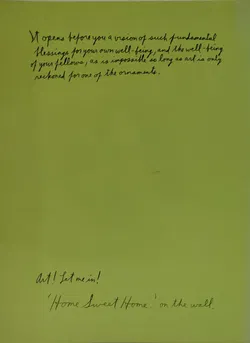 It opens before you a vision of such fundamental
blessings for your own well-being, and the well-being
of your fellows, as is impossible so long as art is only
reckoned for one of the ornaments.
Art! Let me in!
'Home Sweet Home' on the wall.